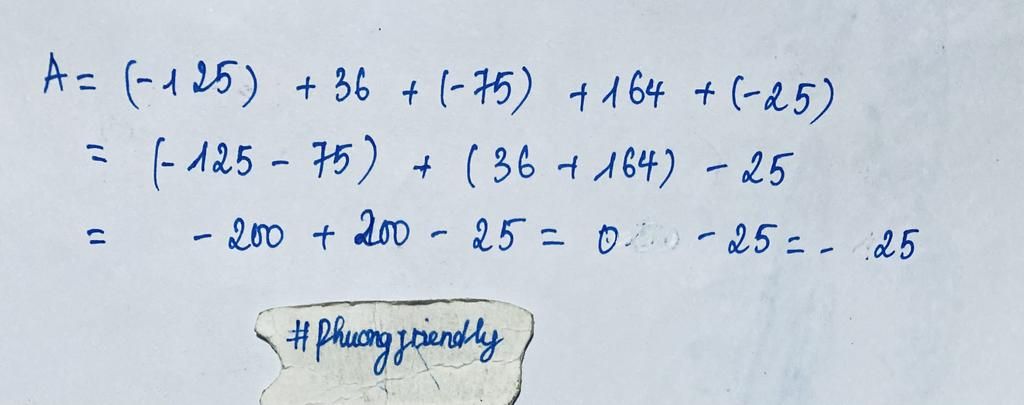 A = (-125) + 36 + (-75) + 164 + (-25)
= (-125 - 75) + (36 + 164) - 25
= - 200 + 200 - 25 = 0 - 25 = - 25
#Phuongfriendly